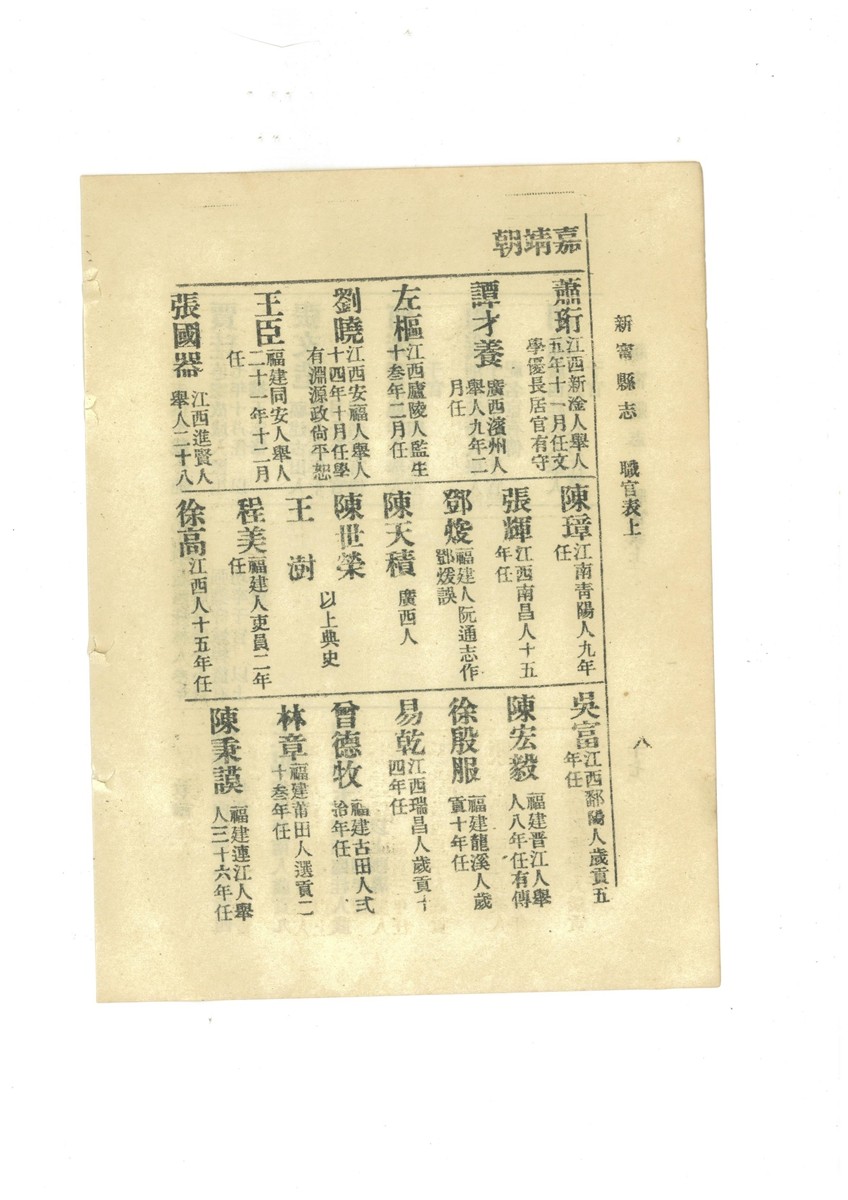 新甯縣志　職官表上
八
嘉靖朝
蕭珩 江西新淦人舉人
五年十一月任文
學優長居官有守
譚才養 廣西濱州人
舉人九年二
月任
左樞 江西廬陵人監生
十叁年二月任
劉曉 江西安福人舉人
十四年十月任學
有淵源政尙平恕
王臣 福建同安人舉人
二十一年十二月
任
張國器 江西進賢人
舉人二十八
陳璋 江南靑陽人九年
任
張輝 江西南昌人十五
年任
鄧㷞 福建人阮通志作
鄧煖誤
陳天積 廣西人
陳世榮
王澍 以上典史
程美 福建人吏員二年
任
徐高 江西人十五年任
吳富 江西鄱陽人歲貢五
年任
陳宏毅 福建晋江人舉
人八年任有傳
徐殷服 福建龍溪人歲
貢十年任
易乾 江西瑞昌人歲貢十
四年任
曾德牧 福建古田人弍
拾年任
林章 福建莆田人選貢二
十叁年任
陳秉謨 福建連江人舉
人三十六年任